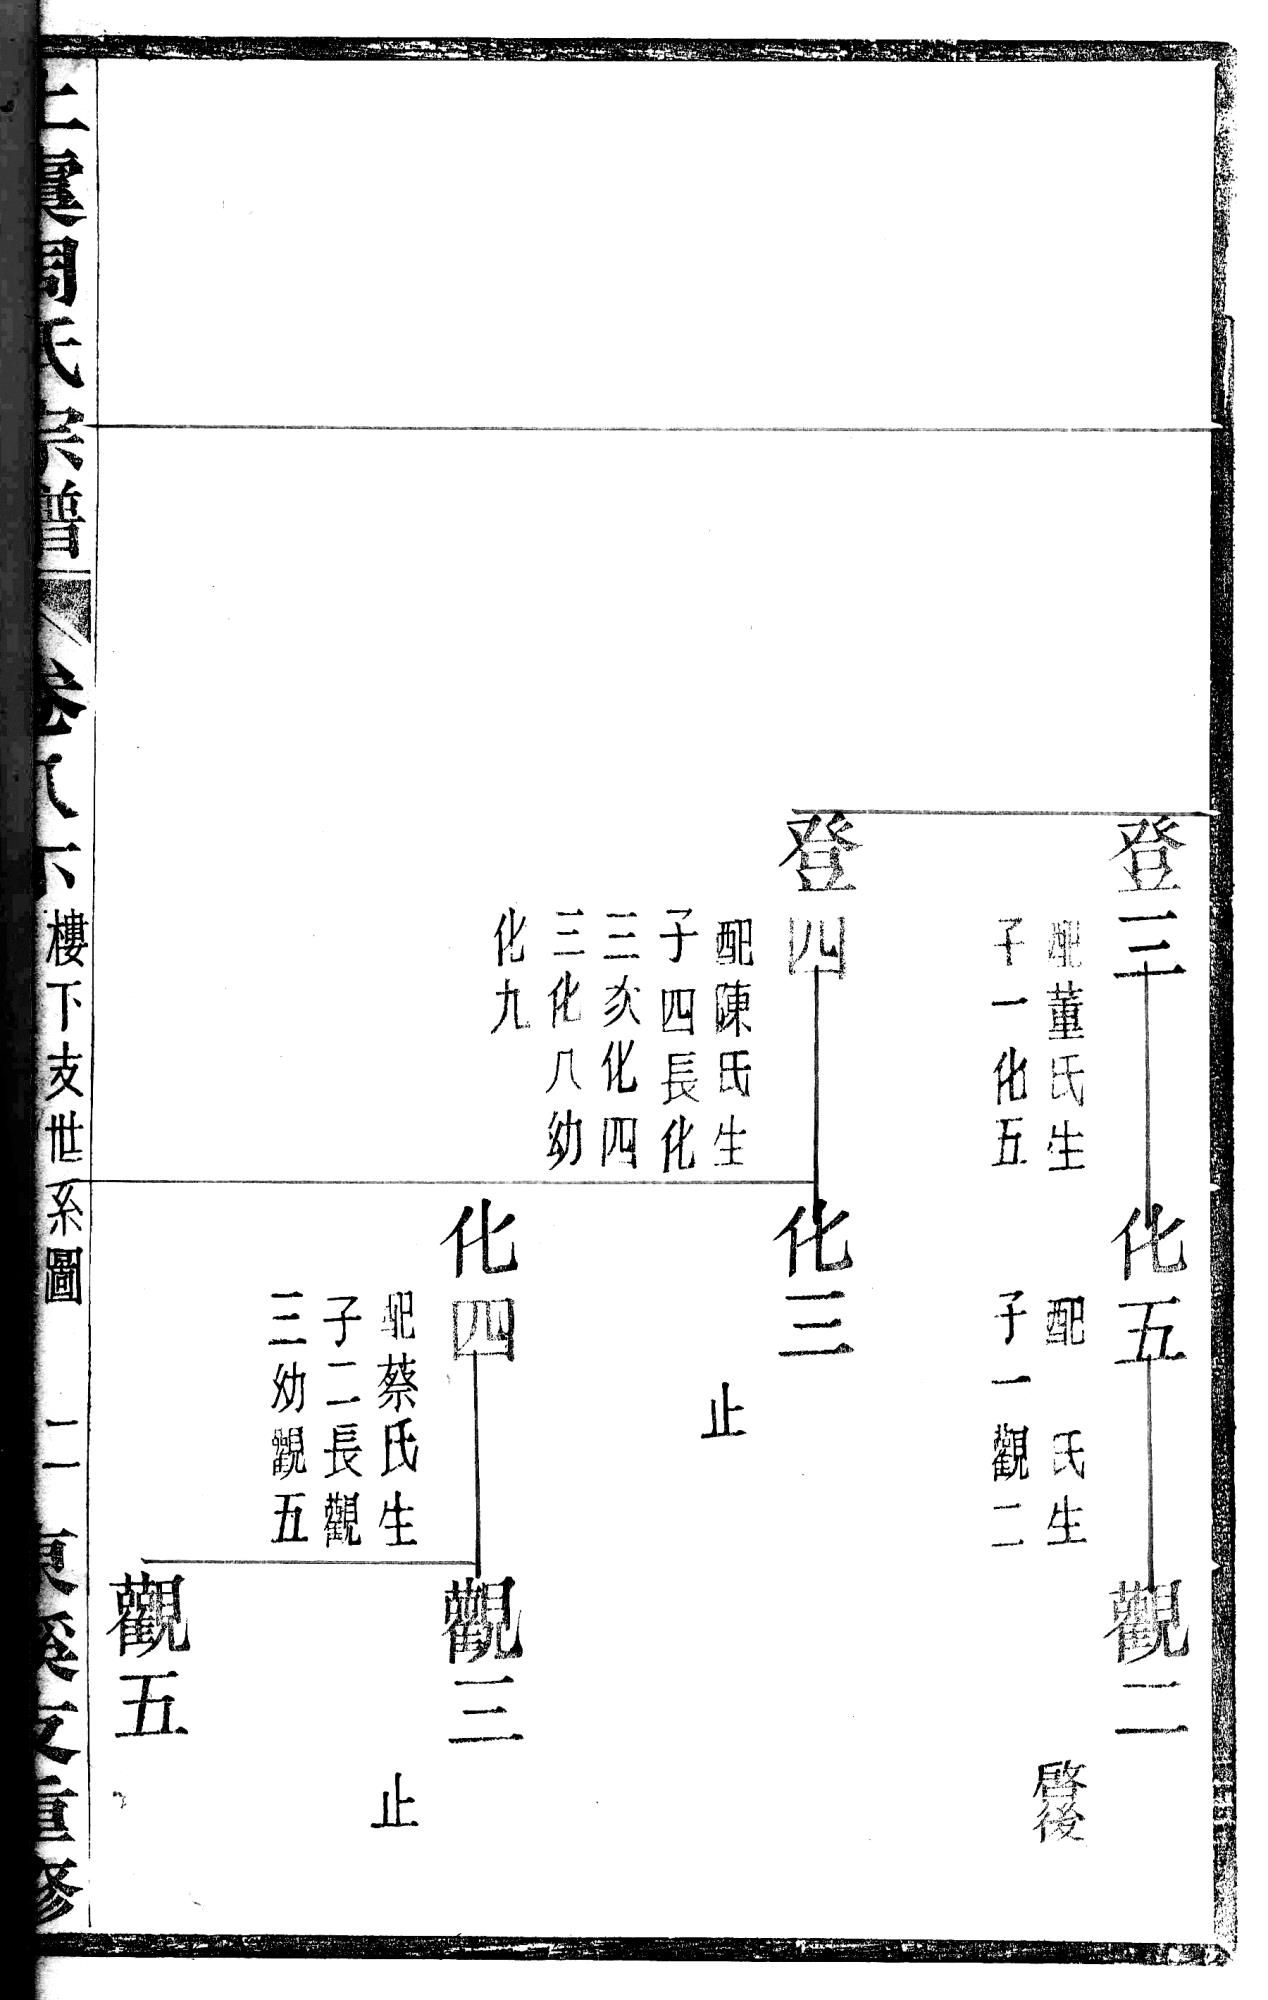 登三
配董氏生
子一化五
化五
配　氏生
子一觀二
觀二
啓後
登四
配陳氏生
子四長化
三次化四
三化八幼
化九
化三
止
化四
配蔡氏生
子二長觀
三幼觀五
觀三
止
觀五
上虞周氏宗譜
卷八
樓下支世系圖
二
東溪 重修